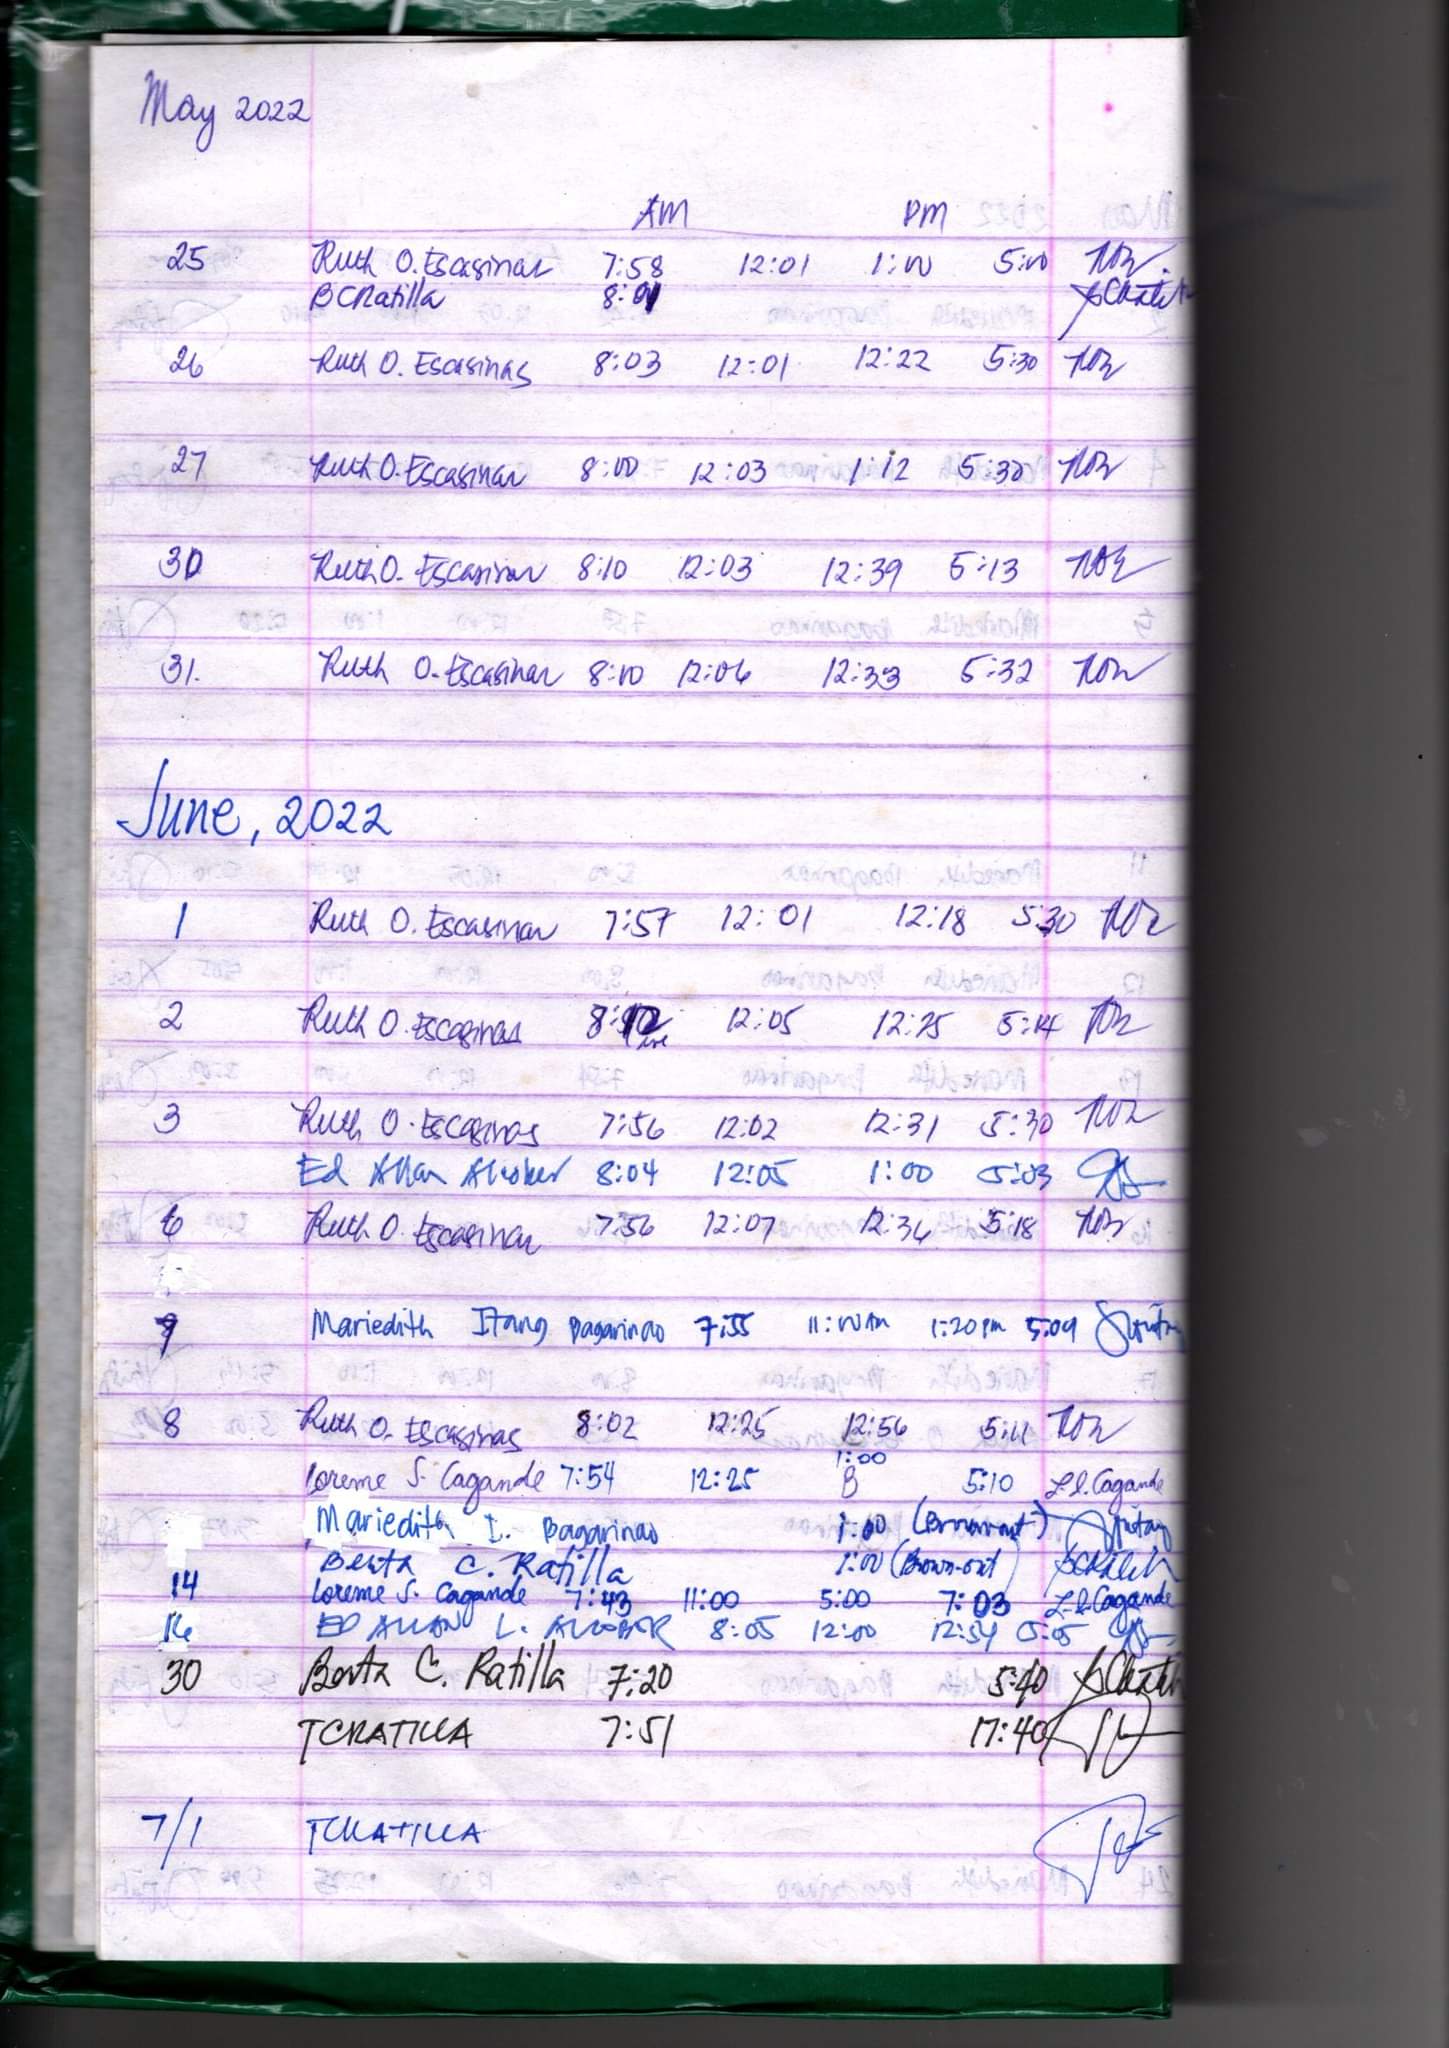 May 2022
AM PM
25 Ruth O. Escasinas 7:58 12:01 1:00 5:00
BCRatilla 8:01
26 Ruth O. Escasinas 8:03 12:01 12:22 5:30
27 Ruth O. Escasinas 8:00 12:03 1:12 5:30
30 Ruth O. Escasinas 8:10 12:03 12:39 5:13
31. Ruth O. Escasinas 8:10 12:06 12:33 5:32
June, 2022
1 Ruth O. Escasinas 7:57 12:01 12:18 5:30
2 Ruth O. Escasinas 12:05 12:25 5:14
3 Ruth O. Escasinas 7:56 12:02 12:31 5:30
Ed Allan Alcober 8:04 12:05 1:00 5:03
6 Ruth O. Escasinas 7:56 12:07 12:36 5:18
Mariedith Itang Bagarinao 7:55 11:00 AM 1:20 PM 5:09
8 Ruth O. Escasinas 8:02 12:25 12:56 5:11
1:00
Loreme S. Cagande 7:54 12:25 5:10 L.S. Cagande
Mariedith I. Bagarinao 1:00 (Brown-out)
Berta C. Ratilla 1:00 (Brown-out)
14 Loreme S. Cagande 7:43 11:00 5:00 7:03 L.S. Cagande
16 ED ALLAN L. ALCOBER 8:05 12:00 12:54 5:05
30 Berta C. Ratilla 7:20 5:40
TCRATILLA 7:51 17:40
7/1 TCRATILLA